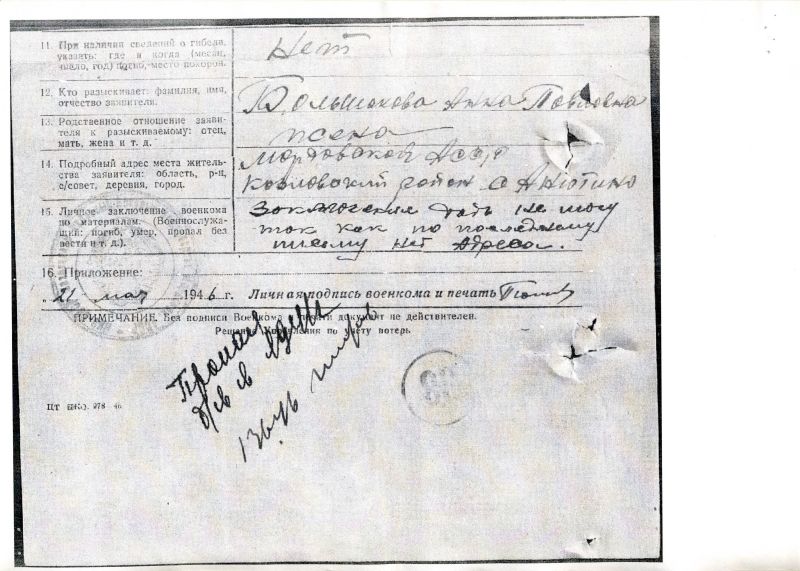 11. При наличии сведений о гибели,
указать: где и когда (месяц,
число, год) погиб, место похорон.
Нет
12. Кто разыскивает: фамилия, имя,
отчество заявителя.
Большакова Анна Павловна
13. Родственное отношение заяви-
теля к разыскиваемому: отец,
мать, жена и т. д.
жена
14. Подробный адрес места житель-
ства заявителя: область, р-н,
с/совет, деревня, город.
Мордовской АССР
Козловский район с Анютино
15. Личное заключение военкома
по материалам. (Военнослужа-
щий: погиб, умер, пропал без
вести и т. д.).
Заключения дать не могу
так как по последнему
письму нет адреса.
16. Приложение:
"21" мая 1946 г. Личная подпись военкома и печать
ПРИМЕЧАНИЕ. Без подписи Военкома и печати документ не действителен.
Решение Управления по учету потерь
ЦТ 978 46